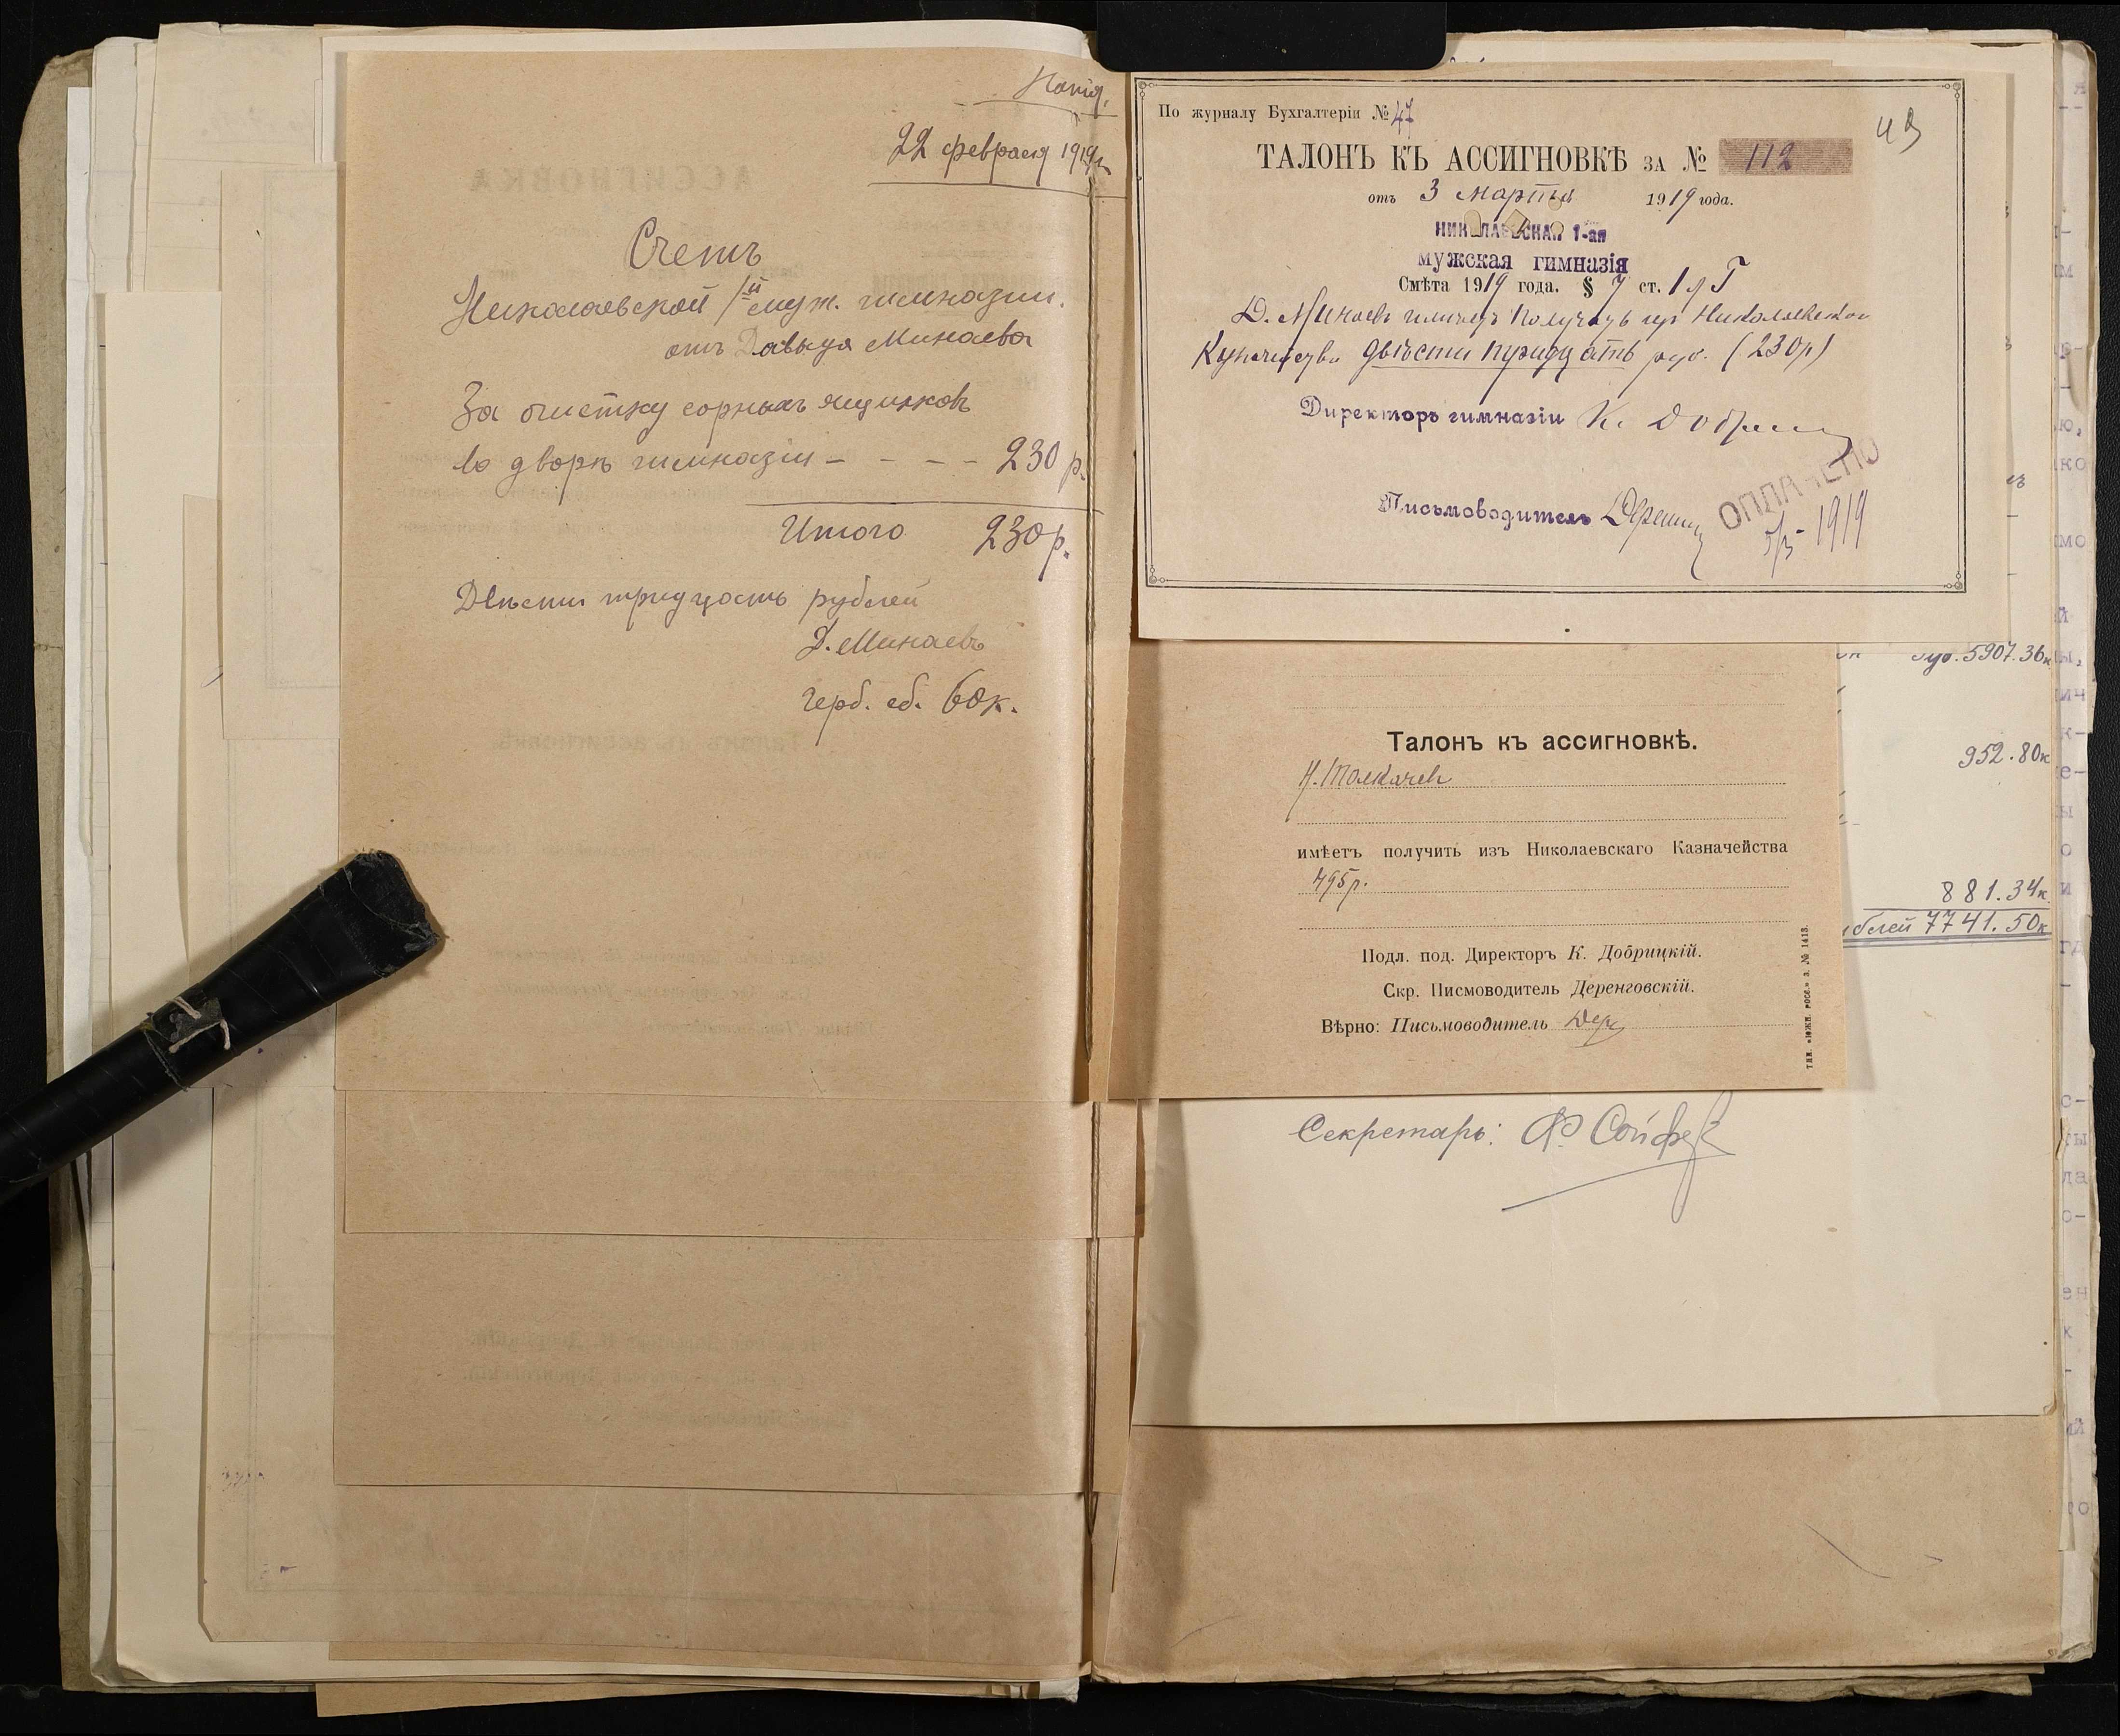 Копія.
22 февраля 1919 г.
Счетъ
Николаевской 1й муж. гимназии.
отъ Давыда Минаева
За очистку сорныхъ ящиковъ
во дворѣ гимназіи - - - - 230 р.
Итого 230 р.
Двѣсти тридцать рублей
Д. Минаевъ
герб. сб. 60 к.
По журналу Бухгалтеріи № 47
49
ТАЛОНЪ КЪ АССИГНОВКѢ ЗА № 112
отъ 3 марта 1919 года.
НИКОЛАЕВСКАЯ 1-ая
мужская гимназія
Смѣта 1919 года. § 7 ст. 1 л Г
Д. Минаевъ имѣетъ получить изъ Николаевскаго
Казначейства двѣсти тридцать руб. (230 р)
Директоръ гимназіи К. Добриц
Письмоводитель Дерен
ОПЛАЧЕНО
1919
5907.36к
952.80к
881.34к
блей 7741.50к
Талонъ къ ассигновкѣ.
Н. Толкачевъ
имѣетъ получить изъ Николаевскаго Казначейства
495 р.
Подл. под. Директоръ К. Добрицкій.
Скр. Писмоводитель Деренговскій.
Вѣрно: Письмоводитель Дер
тип. «южн. росс.» з. № 1413.
Секретарь: Сойфер